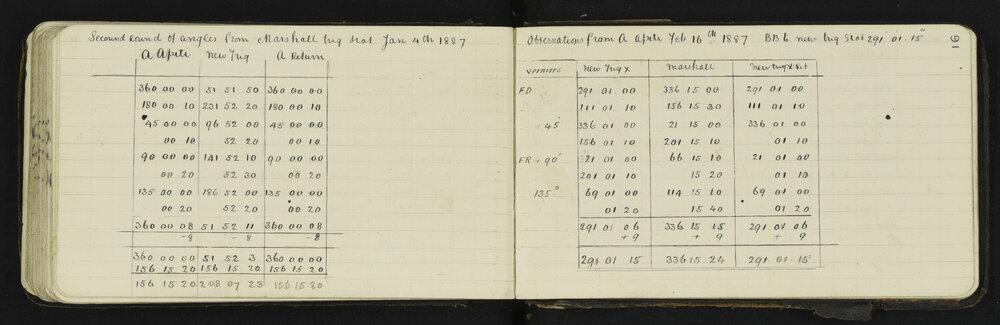 Second round of angles from Marshall trig Stat Jan 4th 1887
A Apiti New Trig A Return
360 00 00 51 51 50 360 00 00
180 00 10 231 52 20 180 00 10
45 00 00 96 52 00 45 00 00
00 10 52 20 00 10
90 00 00 141 52 10 90 00 00
00 20 52 30 00 20
135 00 00 186 52 00 135 00 00
00 20 52 20 00 20
360 00 08 51 52 11 360 00 08
-8 -8 -8
360 00 00 51 52 3 360 00 00
156 15 20 156 15 20 156 15 20
156 15 20 208 07 23 156 15 20
Observations from A Apiti Feb 16th 1887 BB to new trig Stat 291 . 01 . 15" 9
verniers New Trig X Marshall New trig X Ret
FD 291 01 00 336 15 00 291 01 00
111 01 10 156 15 30 111 01 10
+45° 336 01 00 21 15 00 336 01 00
156 01 10 201 15 10 01 10
FR +90° 21 01 00 66 15 10 21 01 00
201 01 10 15 20 01 10
135° 69 01 00 114 15 10 69 01 00
01 20 15 40 01 20
291 01 06 336 15 15 291 01 06
+9 +9 9
291 01 15 336 15 24 291 01 15